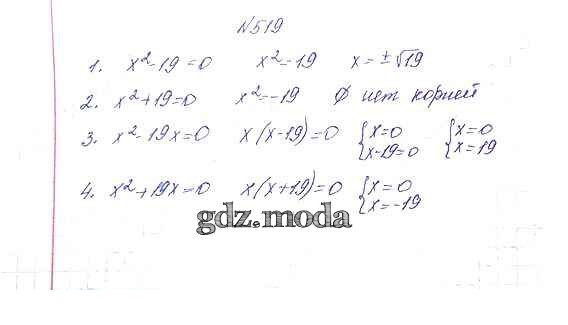 №519
1. x²-19=0 x²=19 x=±√19
2. x²+19=0 x²=-19 Ø нет корней
3. x²-19x=0 x(x-19)=0 {x=0 x-19=0 {x=0 x=19
4. x²+19x=0 x(x+19)=0 {x=0 x=-19
gdz.moda